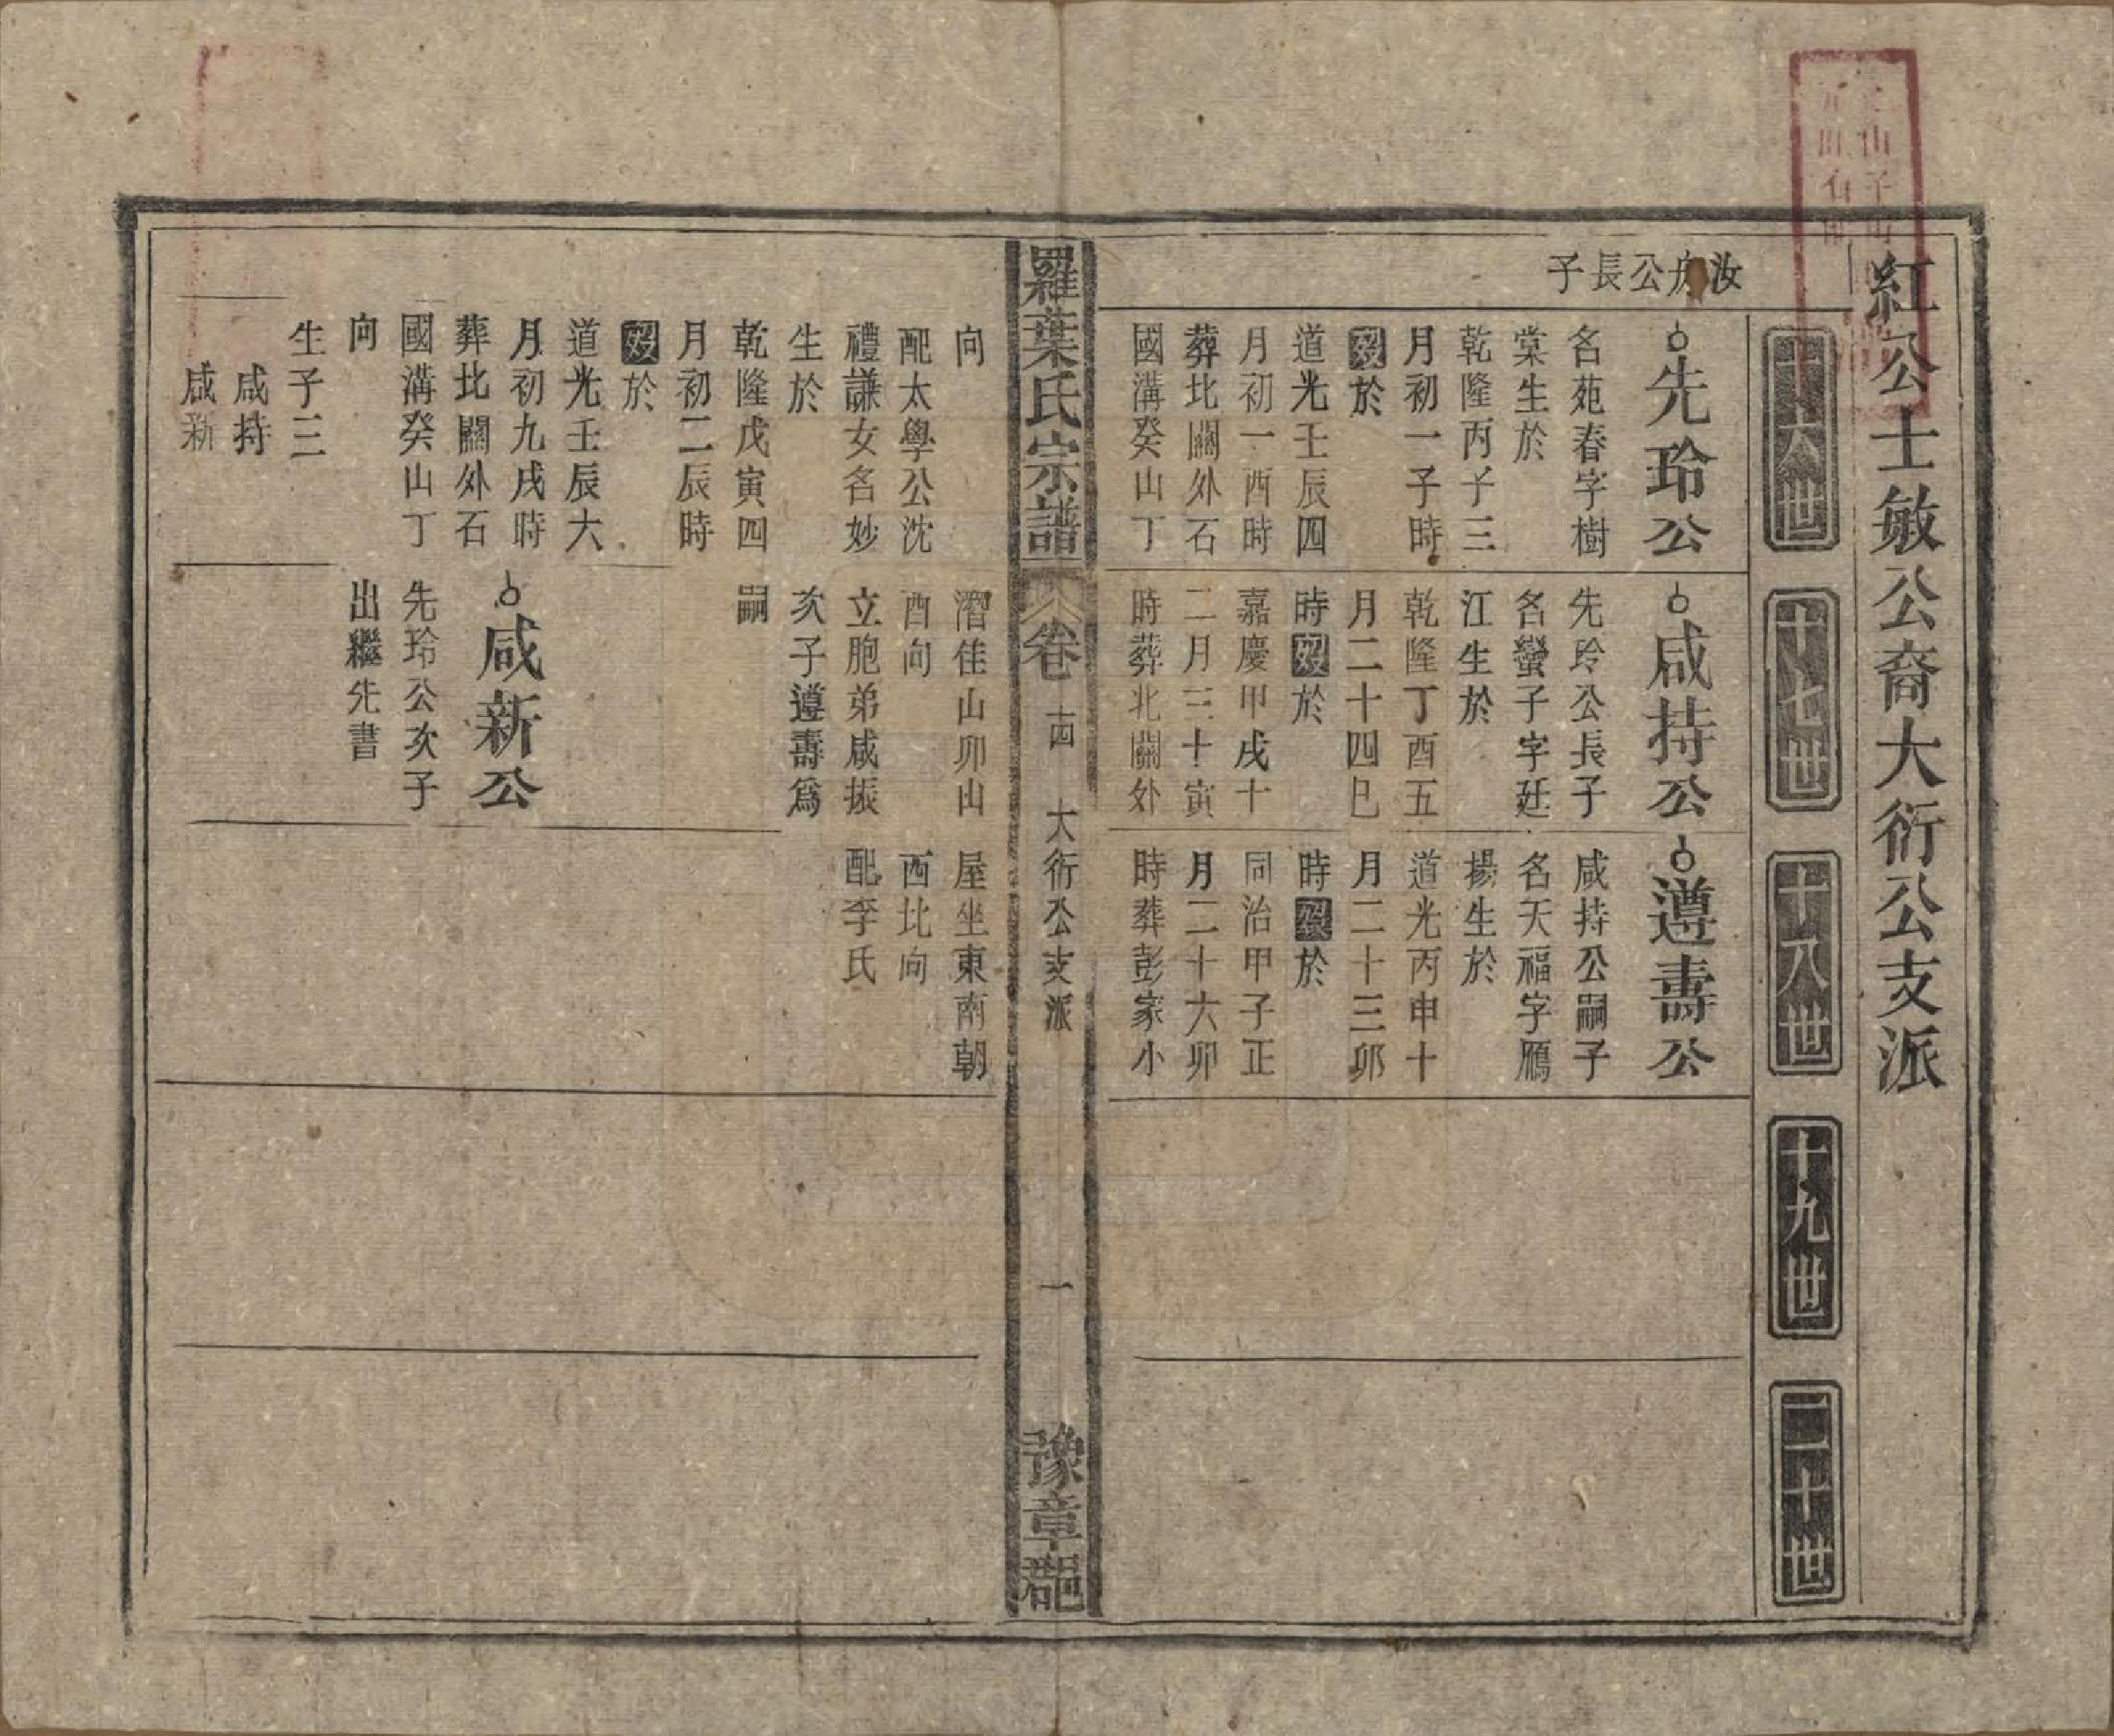 紅公士敏公裔大衍公支派
十六世
十七世
十八世
十九世
二十世
汝 公長子
先玲公
名苑春字樹
棠生於
乾隆丙子三
月初一子時
歿於
道光壬辰四
月初一酉時
葬北關外石
國溝癸山丁
向
配太學公沈
禮謙女名妙
生於
乾隆戊寅四
月初二辰時
歿於
道光壬辰大
月初九戌時
葬北關外石
國溝癸山丁
向
生子三
咸持
咸新
咸持公
先玲公長子
名蠻子字廷
江生於
乾隆丁酉五
月二十四巳
時歿於
嘉慶甲戌十
二月三十寅
時葬北關外
溜佳山卯山
酉向
立胞弟咸振
次子遵壽爲
嗣
咸新公
先玲公次子
出繼先書
遵壽公
咸持公嗣子
名天福字鴈
揚生於
道光丙申十
月二十三卯
時歿於
同治甲子正
月二十六卯
時葬彭家小
屋坐東南朝
西北向
配李氏
羅葉氏宗譜
卷十四
大衍公支派
一
豫章郡